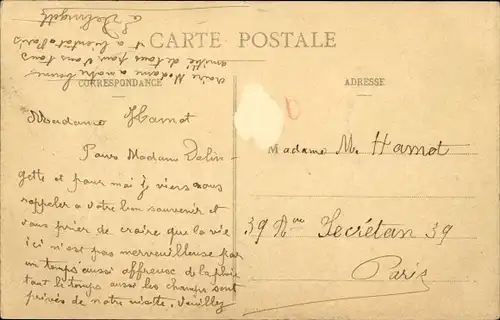 CARTE POSTALE
CORRESPONDANCE
ADRESSE
Madame Hamot
Pour Madame Delin-
gette et pour moi je viens vous
rappeler a votre bon souvenir et
vous prier de croire que la vie
ici n'est pas merveilleuse par
un temps aussi affreux de la pluie
tout le temps aussi les champs sont
privés de notre visite. Veuillez
croire Madame a notre bonne
amitié de tous pour vous tous
et a bientot a Paris
Delingette
Madame M. Hamot
39 Secrétan 39
Paris